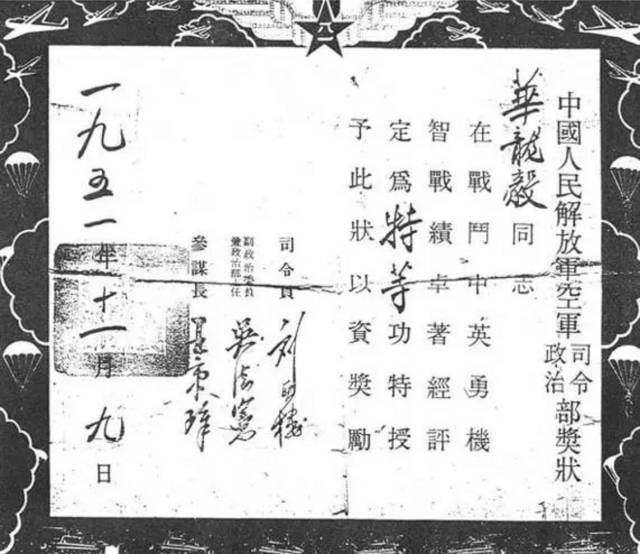 中國人民解放軍空軍司令部政治部獎狀
華龍毅同志
在戰鬥中英勇機
智戰績卓著經評
定為特等功特授
予此狀以資獎勵
司令員 刘亚楼
副政治委員兼政治部主任 吳法憲
參謀長
一九五一年十一月九日
八一